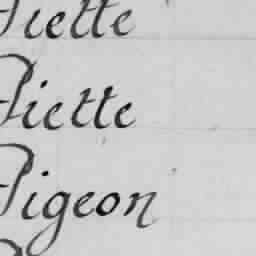 Piette
Piette
Pigeon